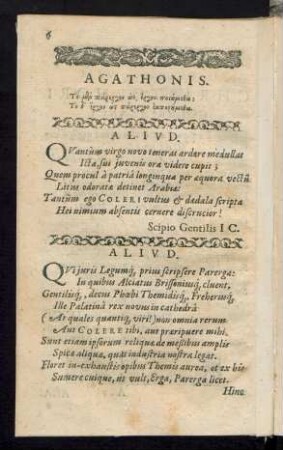 6
AGATHONIS.
Τὸ μὲν πάρεργον ὡς ἔργον ποιούμεθα;
Τὸ δ' ἔργον ὡς πάρεργον ἐκπονούμεθα.
ALIVD.
QVantùm virgo novo teneras ardere medullas
Icta, sui juvenis ora videre cupit;
Quem procul à patriâ longinqua per aequora vectũ
Litus odoratae detinet Arabiae:
Tantùm ego COLERI vultus & daedala scripta
Hei nimium absentis cernere discrucior!
Scipio Gentilis I C.
ALIVD.
QVi juris Legumq́, prius scripsere Parerga:
In quibus Alciatus Brissoniusq́, cluent,
Gentilisq́, decus Phoebi Themidisq́, Freherusq́,
Ille Palatinâ rex novus in cathedrâ
(Ar quales quantiq́, viri!) non omnia rerum
Aut COLERE tibi, aut praeripuere mihi.
Sunt etiam ipsorum reliqua de messibus amplis
Spica aliqua, quas industria nostra legat.
Floret in-exhaustis opibus Themis aurea, et ex his
Sumere cuique, ut vult, Ergo, Parerga licet.
Hinc